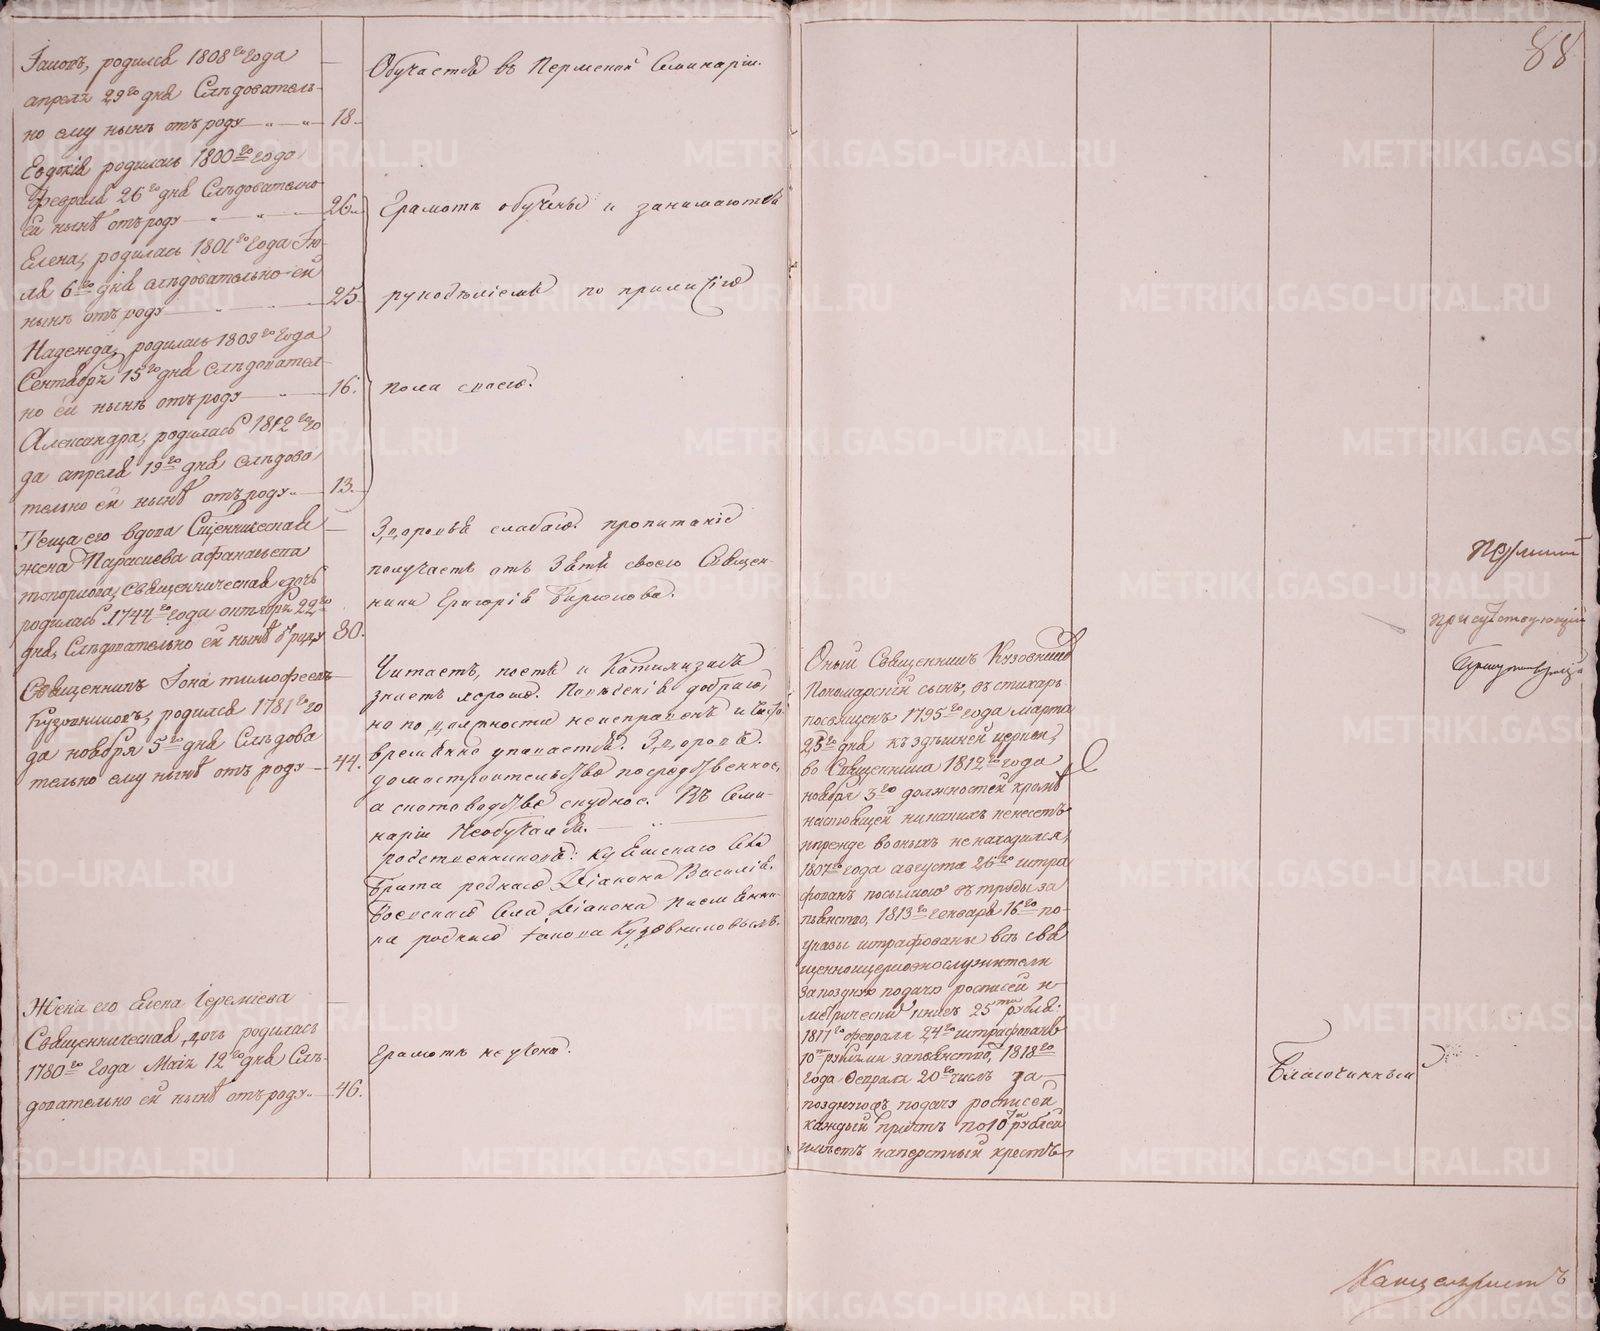 88
Іаковъ, родился 1808го года
апреля 29го дня Слѣдователь-
но ему нынѣ отъ роду 18.
Обучается въ Пермской Семинаріи.
Евдокія родилась 1800го года
Февраля 26го дня Слѣдователно
ей нынѣ отъ роду 26.
Елена, родилась 1801го года Ію-
ля 6го дня слѣдовательно ей
нынѣ отъ роду 25.
Надежда, родилась 1809го года
Сентября 15го дня слѣдовател-
но ей нынѣ отъ роду 16.
Александра, родилась 1812го го
да апреля 19го дня слѣдова
тельно ей нынѣ отъ роду 13.
Грамотѣ обучены и занимаются
рукодѣліемъ по приличію
пола своего.
Теща его вдова Сщенническая
жена Параскева афанасьева
топоркова, священническая дочь
родилась 1744го года октября 22го
дня, Слѣдовательно ей нынѣ отъ роду 80.
Здоровья слабаго. пропитаніе
получаетъ отъ Зятя своего Священ-
ника Григорія Бирюкова.
Священникъ Іона тимофеевъ
Кузовниковъ, родился 1781го го
да ноября 5го дня Слѣдова
тельно ему нынѣ отъ роду 44.
Читаетъ, поетъ и Катихизисъ
знаетъ хорошо. Поведенія добраго,
но по должности неисправенъ и
временно упивается. Здоровъ.
домостроительство посредственное,
а скотоводство скудное. Въ Семи-
наріи Необучался.
родственниковъ:
брата роднаго Діакона Василія.
села Діакона
роднаго Іакова Кузовниковыхъ.
Жена его Елена Іереміева
Священническая дочь родилась
1780го года Маія 12го дня Слѣ-
довательно ей нынѣ отъ роду 46.
Грамотѣ не учена.
Оный Священникъ Кузовниковъ
Пономарскій сынъ, въ стихарь
посвященъ 1795го года марта
25го дня къ здѣшней церкви,
во Священника 1812го года
ноября 3го должностей кромѣ
настоящей никакихъ не несетъ
и прежде во оныхъ не находился,
1807го года августа 26го штра
фованъ посылкою въ труды за
пьянство, 1813го генваря 16го по
указу штрафованы всѣ свя
щенноцерковнослужители
за позднюю подачу росписей и
метрическихъ книгъ 25ти рубля.
1817го февраля 24го штрафованъ
10ти рублями за пьянство, 1818го
года Февраля 20го числъ за
позднюю подачу росписей
каждый причтъ по 10ти рублей
имѣетъ наперстный крестъ
Благочинный
присутствующій
Канцеляристъ